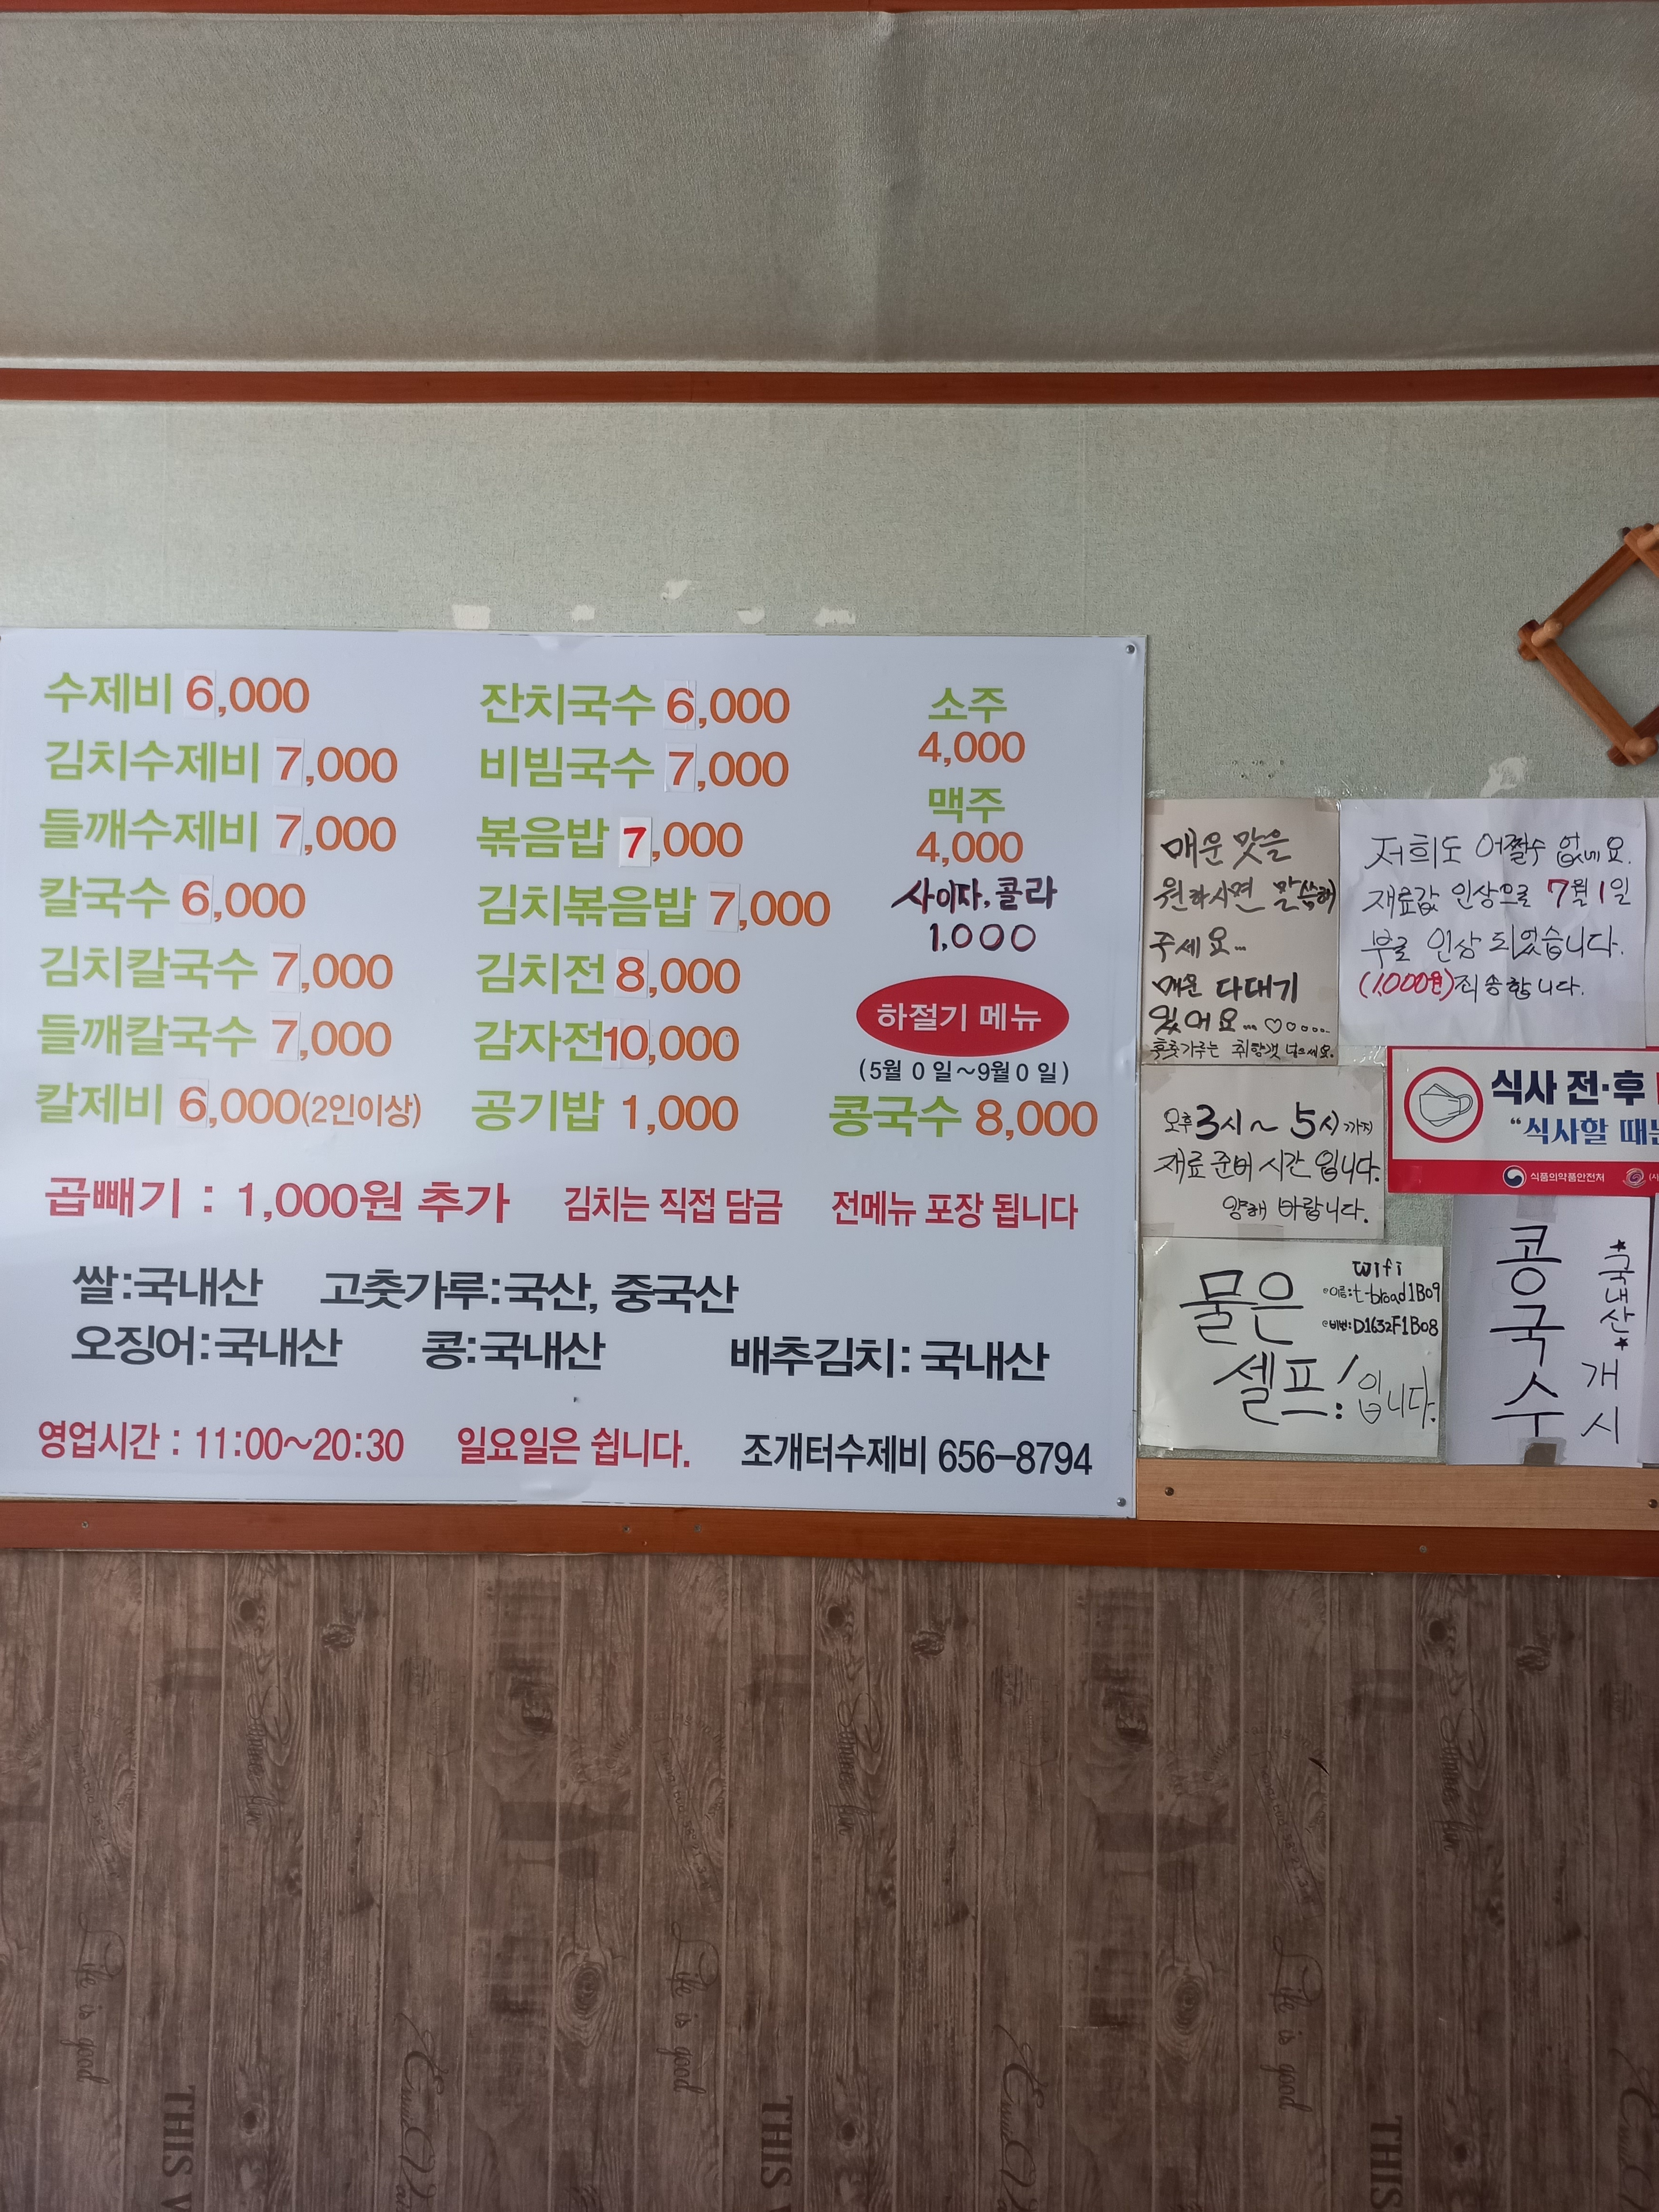 수제비 6,000
김치수제비 7,000
들깨수제비 7,000
칼국수 6,000
김치칼국수 7,000
들깨칼국수 7,000
칼제비 6,000(2인이상)
잔치국수 6,000
비빔국수 7,000
볶음밥 7,000
김치볶음밥 7,000
김치전 8,000
감자전10,000
공기밥 1,000
소주
4,000
맥주
4,000
사이다, 콜라
1,000
하절기 메뉴
(5월 0 일~9월 0 일)
콩국수 8,000
곱빼기 : 1,000원 추가 김치는 직접 담금 전메뉴 포장 됩니다
쌀:국내산 고춧가루:국산, 중국산
오징어:국내산 콩:국내산 배추김치: 국내산
영업시간 : 11:00~20:30 일요일은 쉽니다. 조개터수제비 656-8794
매운맛을
원하시면 말씀해
주세요...
매운 다대기
있어요...♡
후춧가루는 취향껏 넣으세요.
저희도 어쩔수 없네요.
재료값 인상으로 7월 1일
부로 인상 되었습니다.
(1,000원)죄송합니다.
오후 3시~ 5시까지
재료 준비 시간 입니다.
양해 바랍니다.
식사 전·후
“식사할 때는
식품의약품안전처
물은
셀프! 입니다.
wifi
이름:t-broad1B09
비번:D1632F1B08
콩국수
★국내산★
개시
Life is good
Life is good
Life is good
THIS
THIS
THIS